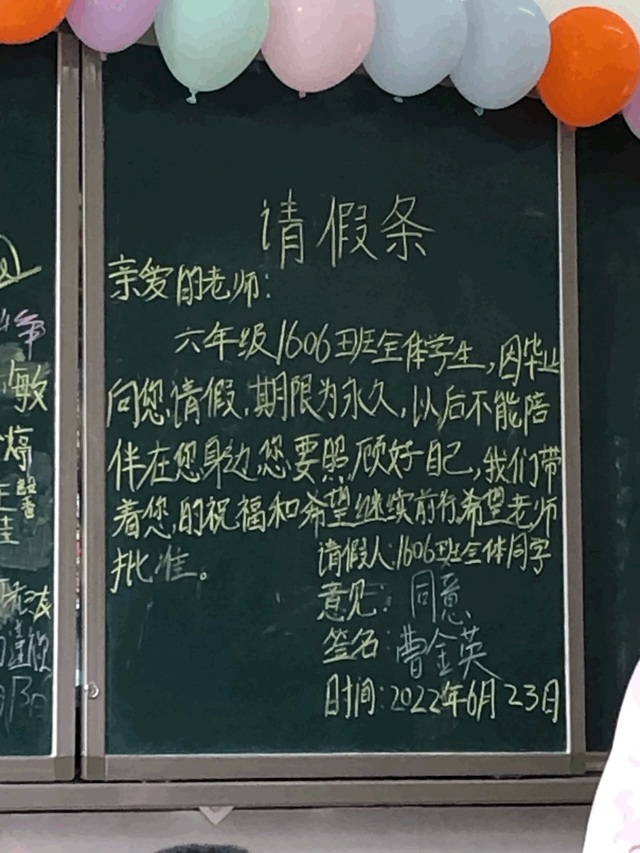 请假条
亲爱的老师：
六年级1606班全体学生，因毕业
向您请假，期限为永久，以后不能陪
伴在您身边，您要照顾好自己，我们带
着您的祝福和希望继续前行希望老师
批准。
请假人：1606班全体同学
意见：同意
签名：曹金英
日时间：2022年6月23日
敏
婷